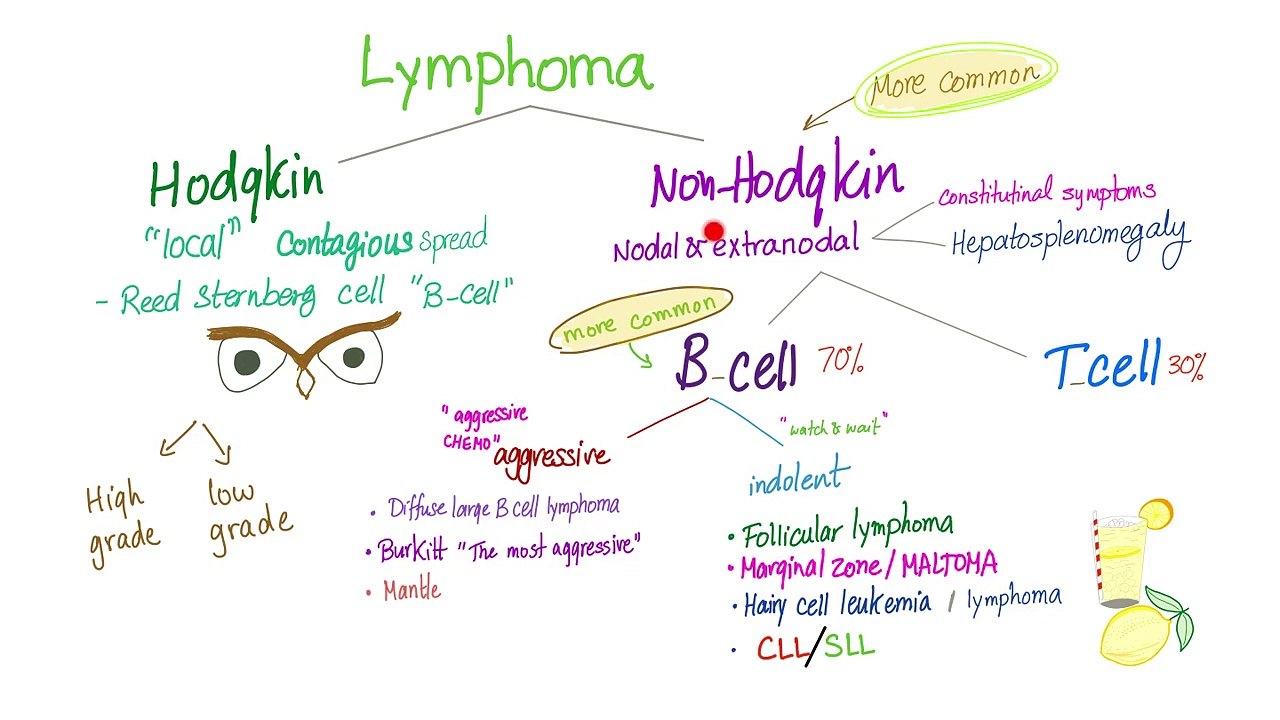 Lymphoma
More common
Hodgkin
"local" Contagious spread
- Reed Sternberg cell "B-cell"
High grade
low grade
Non-Hodgkin
Nodal & extranodal
Constitutinal symptoms
Hepatosplenomegaly
more common
B-cell 70%
T-cell 30%
"aggressive
CHEMO"
aggressive
• Diffuse large B cell lymphoma
• Burkitt "The most aggressive"
• Mantle
"watch & wait"
indolent
• Follicular lymphoma
• Marginal zone / MALTOMA
• Hairy cell leukemia / lymphoma
• CLL/SLL